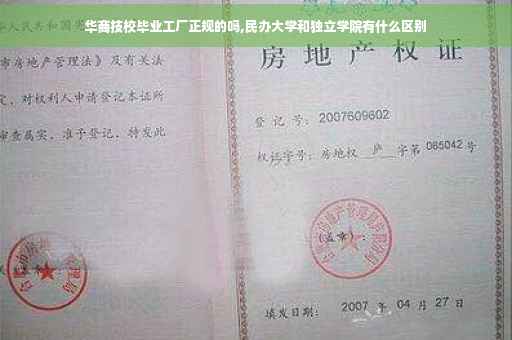 华商技校毕业工厂正规的吗,民办大学和独立学院有什么区别
华人民共和国宪
市房地产管理法》及有关法
定，对权利人申请登记本证所
审查属实，准予登记，特发此
房地产权证
登记号：2007609602
权证字号：房地权 庐 字第 085042 号
(盖章)：
填发日期：2007 年 04 月 27 日